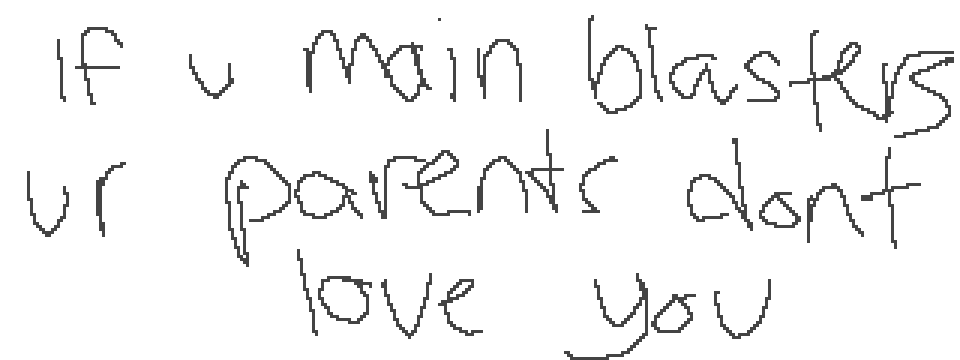 If u main blasters
ur parents dont
love you